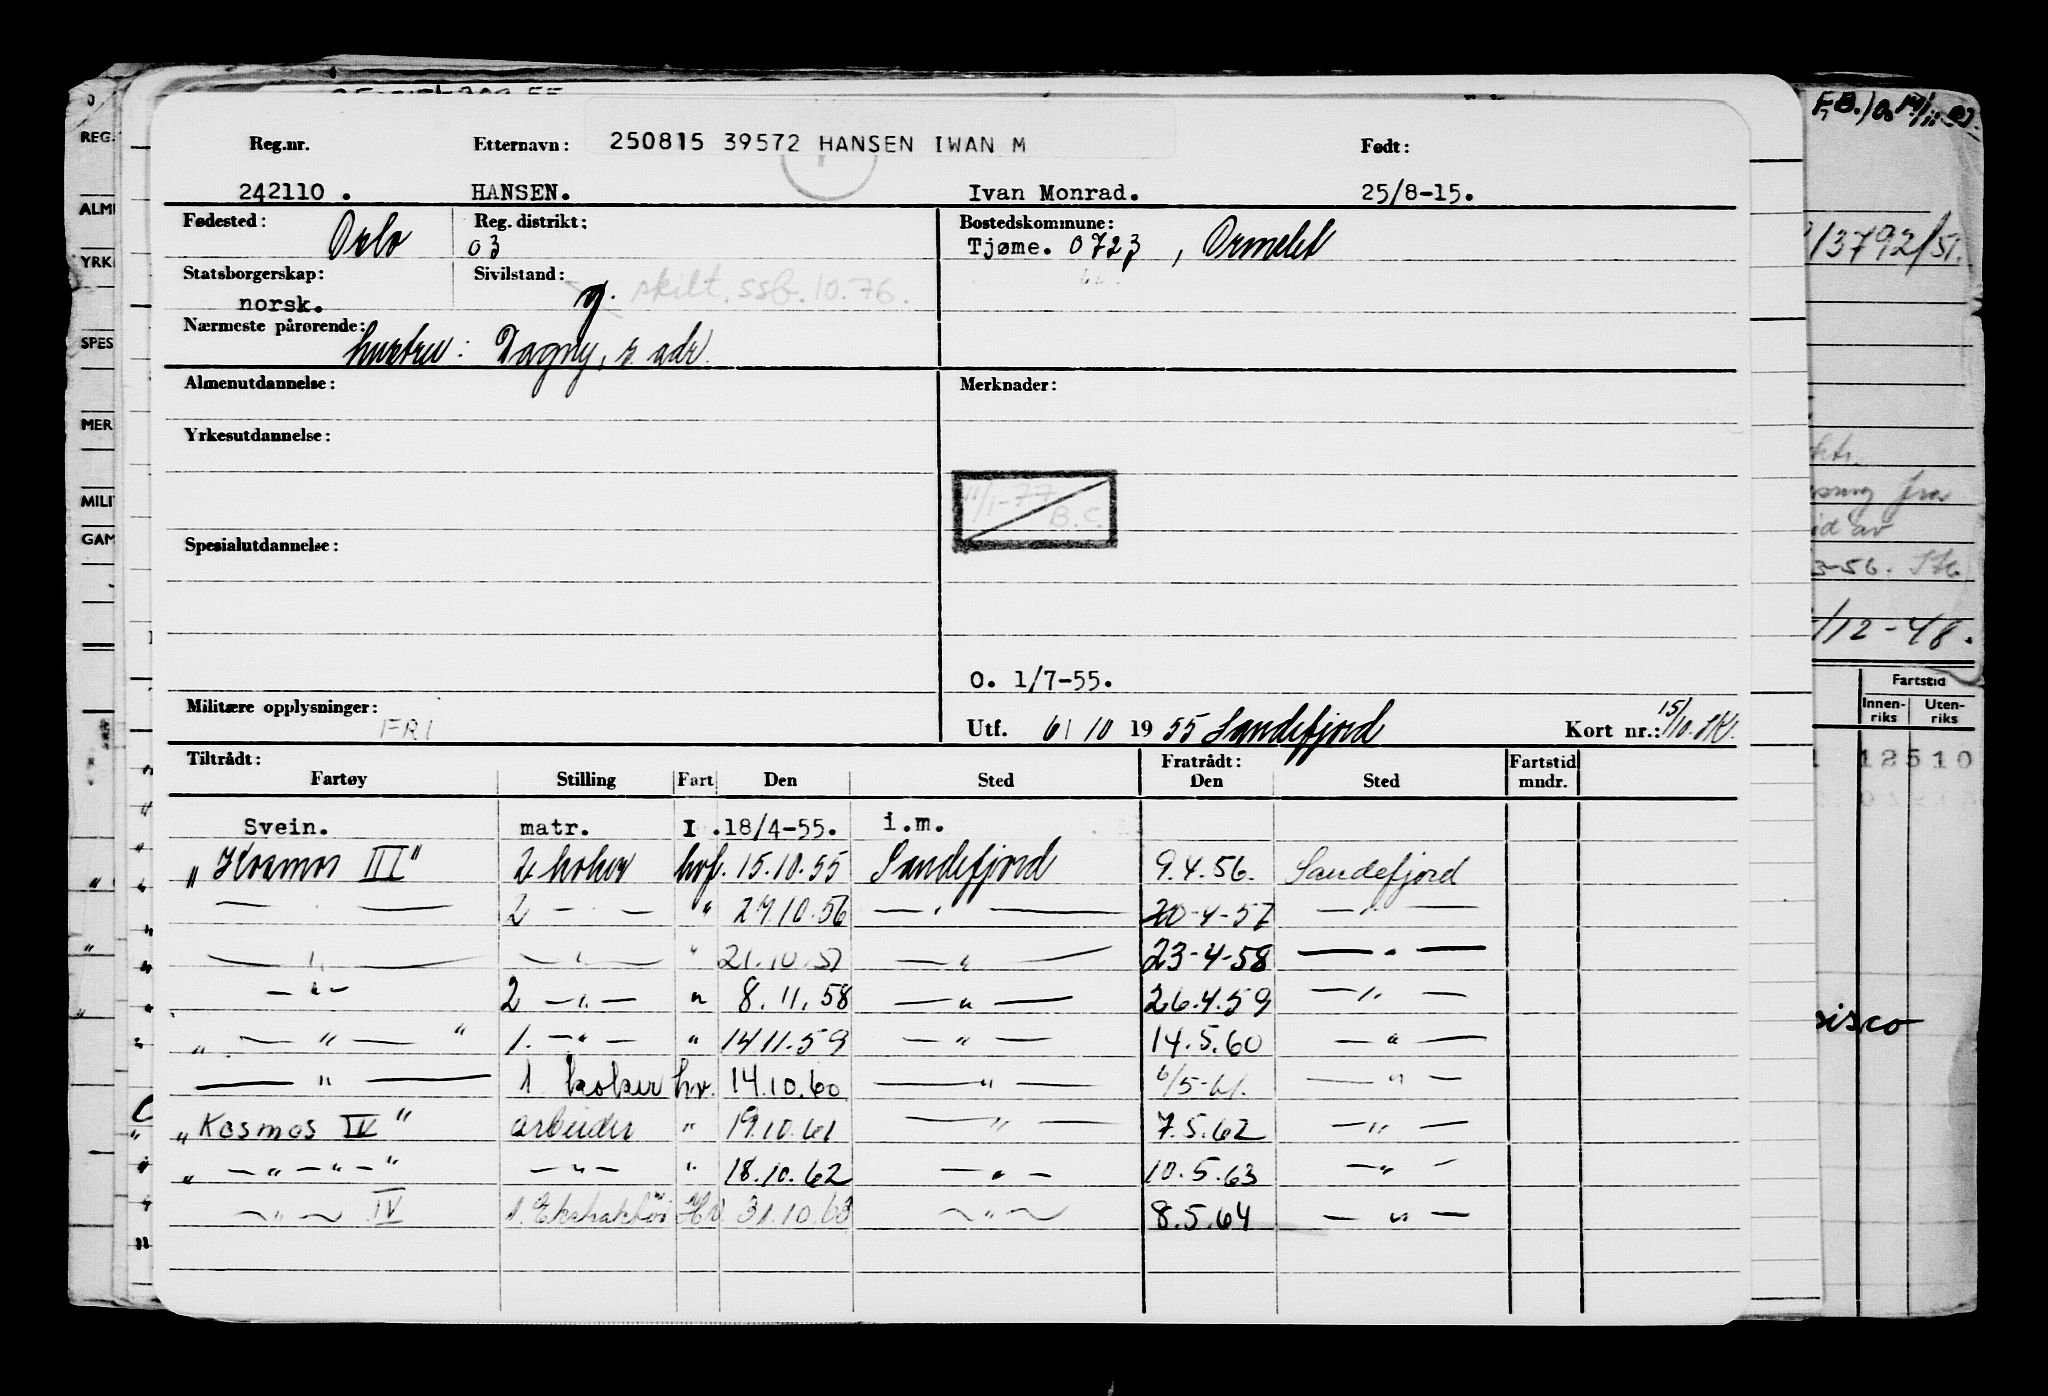 F.B.
REG.
Reg.nr. Etternavn: 250815 39572 HANSEN IWAN M Født:
242110. HANSEN. Ivan Monrad. 25/8-15.
ALM
Fødested: Oslo Reg. distrikt: 03 Bostedskommune: Tjøme. 0723, Ormelet
3792/51.
YRK
Statsborgerskap: norsk. Sivilstand: g. skilt. ssb. 10.76.
Nærmeste pårørende: hustru: Dagny, s. adr.
SPES
Almenutdannelse: Merknader:
MER
Yrkesutdannelse:
11/1-77 B.C.
MILI
fra
GAM
av
Spesialutdannelse:
3-56.
/12-48.
O. 1/7-55.
Militære opplysninger: FRI Utf. 6/10 1955 Sandefjord Kort nr.: 15/10.
Fartstid
Innenriks Utenriks
Tiltrådt: Fratrådt:
Fartøy Stilling Fart Den Sted Den Sted Fartstid mndr.
12510
Svein. matr. I .18/4-55. i.m.
„Kosmos III" 2 koker hvf. 15.10.55 Sandefjord 9.4.56. Sandefjord
— — 2 — — " 27.10.56 — " — 20-4-57 — " —
— " — — " — " 21.10.57 — " — 23-4-58 — " —
— " — 2 — " — " 8.11.58 — " — 26.4.59 — " —
„ — " — " 1. — " — " 14.11.59 — " — 14.5.60 — " —
isco
— " — 1 koker hv. 14.10.60 — " — 6/5-61. — " —
„Kosmos IV" arbeider " 19.10.61 — " — 7.5.62 — " —
„ — " — " — " — " — " 18.10.62 — " — 10.5.63 — " —
— " — IV 1. Ekstraktør Hv 31.10.63 — " — 8.5.64 — " —